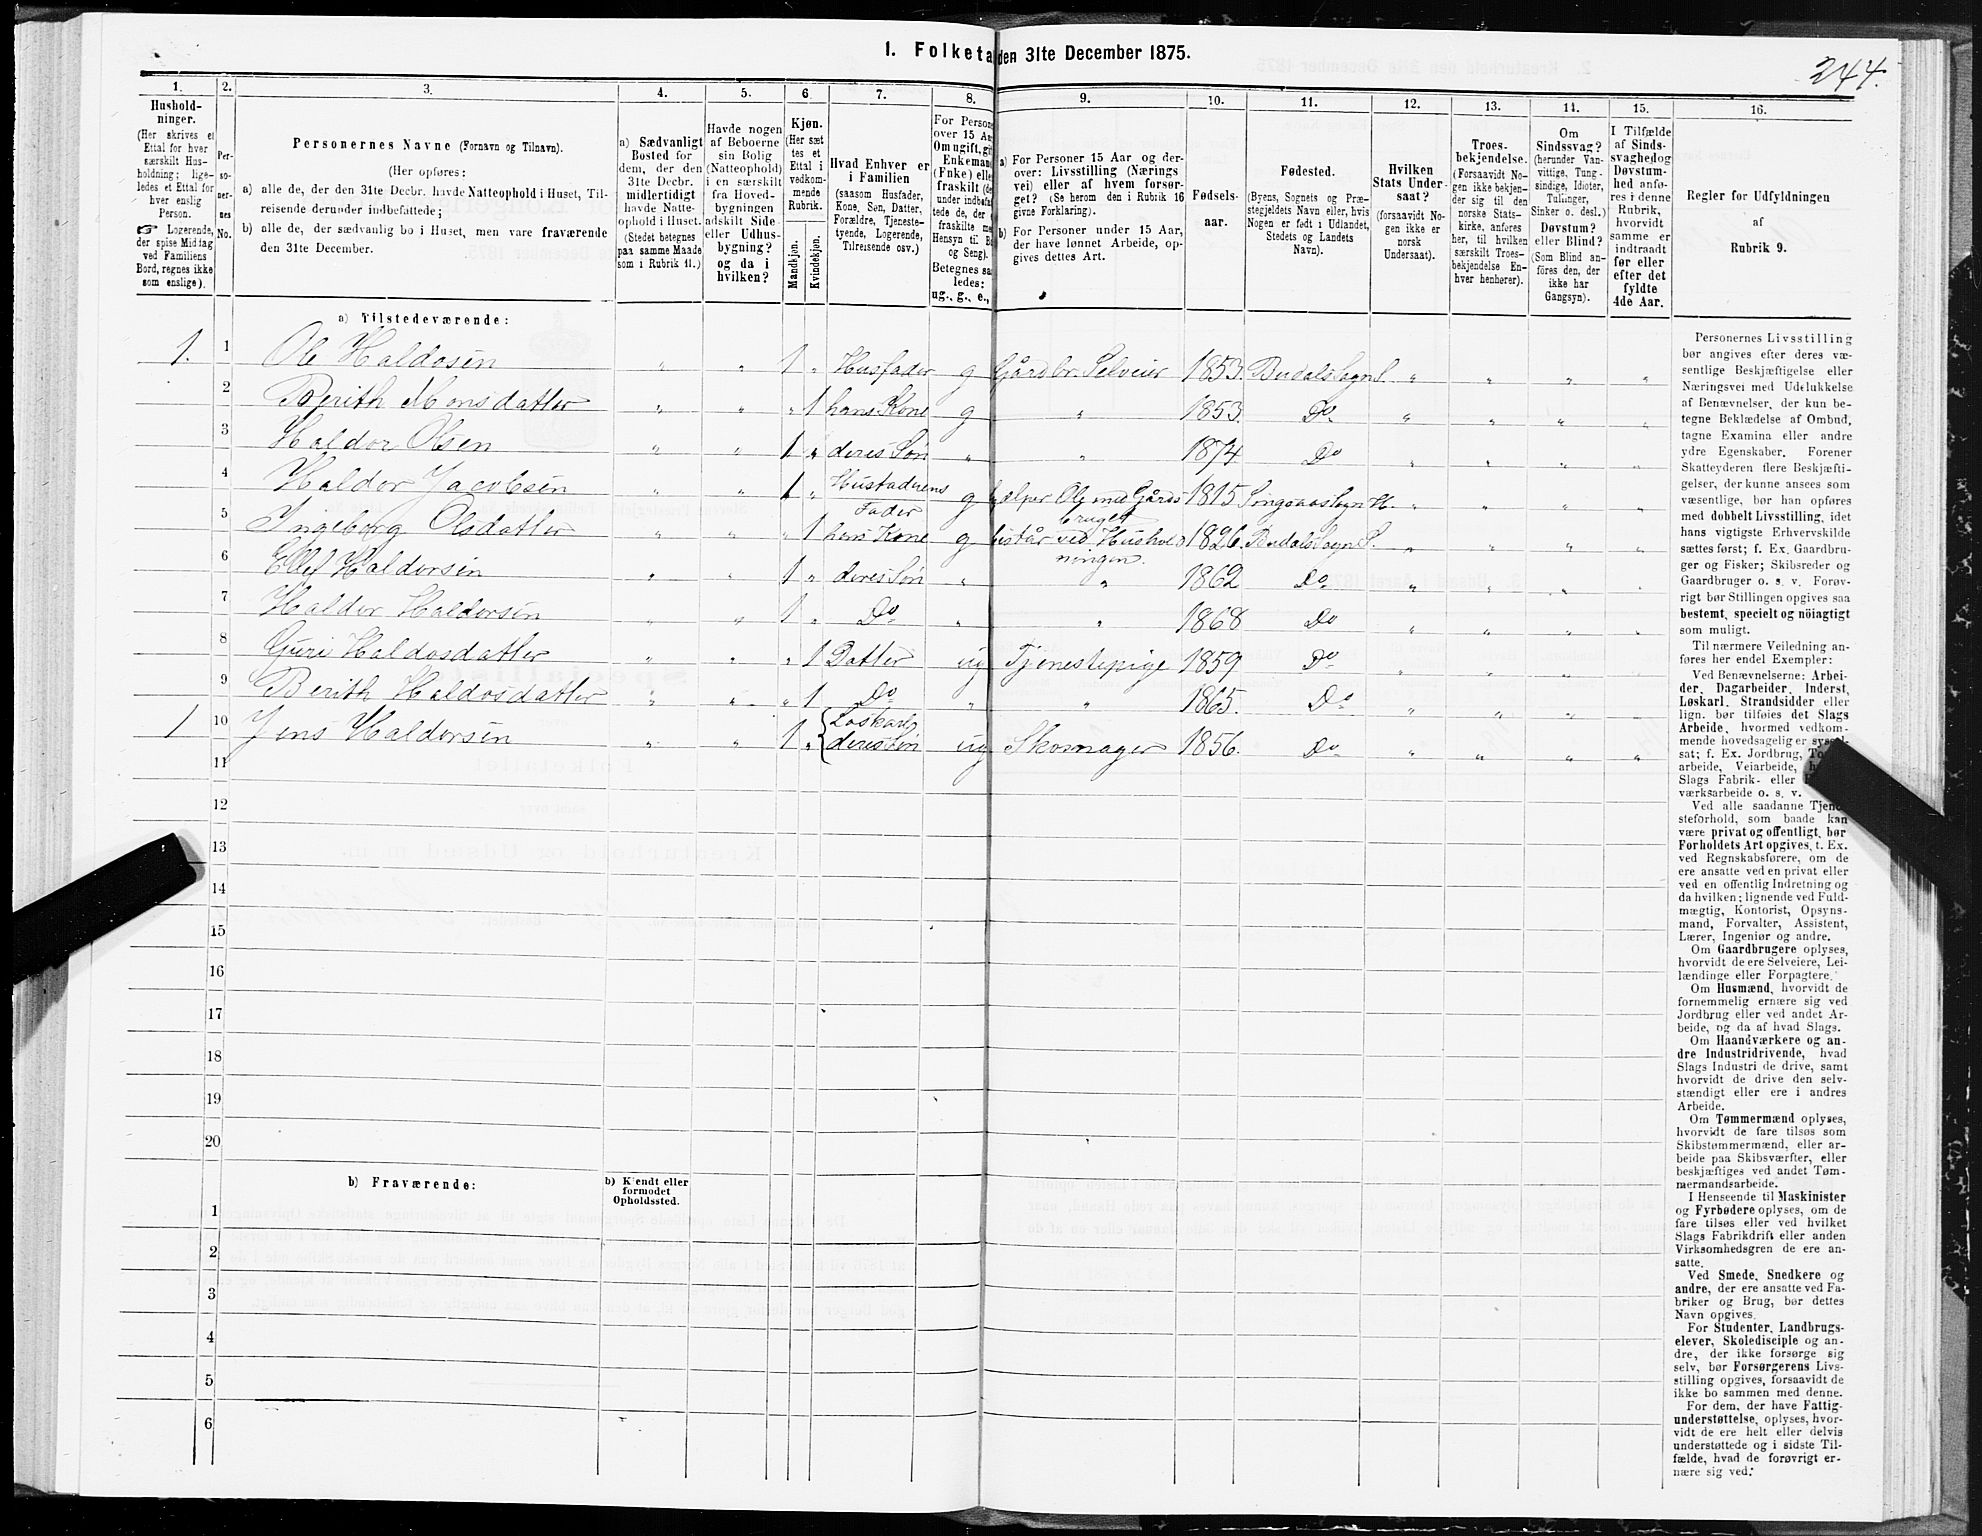 244.
1. Folketa den 31te December 1875.
1. 2. 3. 4. 5. 6 7. 8. 9. 10. 11. 12. 13. 14. 15. 16.
Hushold-
ninger.
(Her skrives et
Ettal for hver
særskilt Hus-
holdning; lige-
ledes et Ettal for
hver enslig
Person.
☞ Logerende,
der spise Middag
ved Familiens
Bord, regnes ikke
som enslige).
Per-
so-
ner-
nes
No.
Personernes Navne (Fornavn og Tilnavn).
(Her opføres:
a) alle de, der den 31te Decbr. havde Natteophold i Huset, Til-
reisende derunder indbefattede;
b) alle de, der sædvanlig bo i Huset, men vare fraværende
den 31te December.
a) Sædvanligt
Bosted for
dem, der den
31te Decbr.
midlertidigt
havde Natte-
ophold i Huset.
(Stedet betegnes
paa samme Maade
som i Rubrik 11.)
Havde nogen
af Beboerne
sin Bolig
(Natteophold)
i en særskilt
fra Hoved-
bygningen
adskilt Side-
eller Udhus-
bygning?
og da i
hvilken?
Kjøn.
(Her sæt-
tes et
Ettal i
vedkom-
mende
Rubrik.
Mandkjøn.
Kvindekjøn.
Hvad Enhver er
i Familien
(saasom Husfader,
Kone, Søn, Datter,
Forældre, Tjeneste-
tyende, Logerende,
Tilreisende osv.)
For Persone
over 15 Aa
Om ugift, gif
Enkemand
(Enke) elle
fraskilt (de
under indbefat
tede de, der e
fraskilte me
Hensyn til B
og Seng).
Betegnes saa
ledes:
ug., g., e.,
a) For Personer 15 Aar og der-
over: Livsstilling (Nærings-
vei) eller af hvem forsør-
get? (Se herom den i Rubrik 16
givne Forklaring).
b) For Personer under 15 Aar,
der have lønnet Arbeide, op-
gives dettes Art.
Fødsels-
aar.
Fødested.
(Byens, Sognets og Præ-
stegjeldets Navn eller, hvis
Nogen er født i Udlandet,
Stedets og Landets
Navn).
Hvilken
Stats Under-
saat?
(forsaavidt No-
gen ikke er
norsk
Undersaat).
Troes-
bekjendelse.
(Forsaavidt No-
gen ikke bekjen-
der sig til den
norske Stats-
kirke, anføres
her, til hvilken
særskilt Troes-
bekjendelse En-
hver henhører).
Om
Sindssvag?
(herunder Van-
vittige, Tung-
sindige, Idioter,
Tullinger,
Sinker o. desl.)
Døvstum?
eller Blind?
(Som Blind an-
føres den, der
ikke har
Gangsyn).
I Tilfælde
af Sinds-
svaghed og
Døvstum-
hed anfø-
res i denne
Rubrik,
hvorvidt
samme er
indtraadt
før eller
efter det
fyldte
4de Aar.
Regler for Udfyldningen
af
Rubrik 9.
a) Tilstedeværende:
1. 1 Ole Haldosen „ „ 1 „ Husfader g Gårdbr. Selveier 1853. Budals Sogn S. „ „ „ „
2 Berith Monsdatter „ „ „ 1 hans Kone g „ 1853. Do „ „ „ „
3 Haldor Olsen „ „ 1 „ deres Søn „ „ 1874. Do „ „ „ „
4 Haldor Jacobsen „ „ 1 „ Husfaderens Fader g hjælper Ole med Gårdsbruget 1815. Singsaas Sogn H. „ „ „ „
5 Ingeborg Olsdatter „ „ „ 1 hans Kone g bistår ved Husholdningen. 1826. Budals Sogn S. „ „ „ „
6 Ellef Haldorsen „ „ 1 „ deres Søn „ „ 1862 Do „ „ „ „
7 Haldor Haldorsen „ „ 1 „ Do „ „ 1868 Do „ „ „ „
8 Guri Haldosdatter „ „ „ 1 Datter ug Tjenestepige 1859 Do „ „ „ „
9 Berith Haldosdatter „ „ „ 1 Do „ „ 1865. Do „ „ „ „
1 10 Jens Haldorsen „ „ 1 „ { Løskarl deres Søn ug Skomager 1856. Do „ „ „ „
11
12
13
14
15
16
17
18
19
20
b) Fraværende:
b) Kjendt eller
formodet
Opholdssted.
1
2
3
4
5
6
Personernes Livsstilling
bør angives efter deres væ-
sentlige Beskjæftigelse eller
Næringsvei med Udelukkelse
af Benævnelser, der kun be-
tegne Beklædelse af Ombud,
tagne Examina eller andre
ydre Egenskaber. Forener
Skatteyderen flere Beskjæfti-
gelser, der kunne ansees som
væsentlige, bør han opføres
med dobbelt Livsstilling, idet
hans vigtigste Erhvervskilde
sættes først; f. Ex. Gaardbru-
ger og Fisker; Skibsreder og
Gaardbruger o. s. v. Forøv-
rigt bør Stillingen opgives saa
bestemt, specielt og nöiagtigt
som muligt.
Til nærmere Veiledning an-
føres her endel Exempler:
Ved Benævnelserne: Arbei-
der, Dagarbeider, Inderst,
Løskarl, Strandsidder eller
lign. bør tilføies det Slags
Arbeide, hvormed vedkom-
mende hovedsagelig er syssel-
sat; f. Ex. Jordbrug,
arbeide, Veiarbeide,
Slags Fabrik- eller
værksarbeide o. s. v.
Ved alle saadanne Tjene-
steforhold, som baade kan
være privat og offentligt, bør
Forholdets Art opgives, t. Ex.
ved Regnskabsførere, om de
ere ansatte ved en privat eller
ved en offentlig Indretning og
da hvilken; lignende ved Fuld-
mægtig, Kontorist, Opsyns-
mand, Forvalter, Assistent,
Lærer, Ingeniør og andre.
Om Gaardbrugere oplyses,
hvorvidt de ere Selveiere, Lei-
lændinge eller Forpagtere.
Om Husmænd, hvorvidt de
fornemmelig ernære sig ved
Jordbrug eller ved andet Ar-
beide, og da af hvad Slags.
Om Haandværkere og an-
dre Industridrivende, hvad
Slags Industri de drive, samt
hvorvidt de drive den selv-
stændigt eller ere i andres
Arbeide.
Om Tømmermænd oplyses,
hvorvidt de fare tilsøs som
Skibstømmermænd, eller ar-
beide paa Skibsværfter, eller
beskjæftiges ved andet Tøm-
mermandsarbeide.
I Henseende til Maskinister
og Fyrbødere oplyses, om de
fare tilsøs eller ved hvilket
Slags Fabrikdrift eller anden
Virksomhedsgren de ere an-
satte.
Ved Smede, Snedkere og
andre, der ere ansatte ved Fa-
briker og Brug, bør dettes
Navn opgives.
For Studenter, Landbrugs-
elever, Skoledisciple og an-
dre, der ikke forsørge sig
selv, bør Forsørgerens Livs-
stilling opgives, forsaavidt de
ikke bo sammen med denne.
For dem, der have Fattig-
understøttelse, oplyses, hvor-
vidt de ere helt eller delvis
understøttede og i sidste Til-
fælde, hvad de forøvrigt er-
nære sig ved.